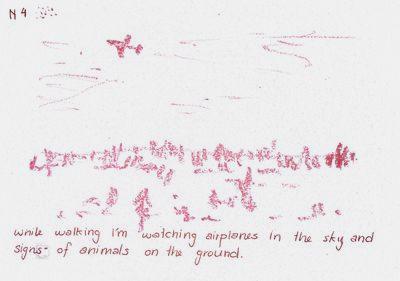 N 4
while walking I'm watching airplanes in the sky and
signs of animals on the ground.